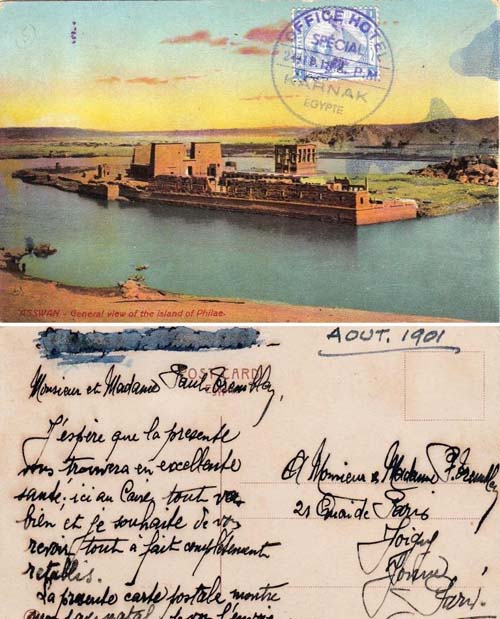 OFFICE HOTEL
SPÉCIAL
P.M
KARNAK
EGYPTE
ASSWAN - General view of the island of Philae.
AOUT. 1901
POST CARD
Monsieur et Madame Paul Tremblay,
J'espère que la presente
vous trouvera en excellente
santé; ici au Caire, tout va
bien et je souhaite de vous
revoir tout à fait complètement
retablis.
La presente carte postale montre
A Monsieur & Madame P. Tremblay
21 Quai de Paris
Joigny
Yonne